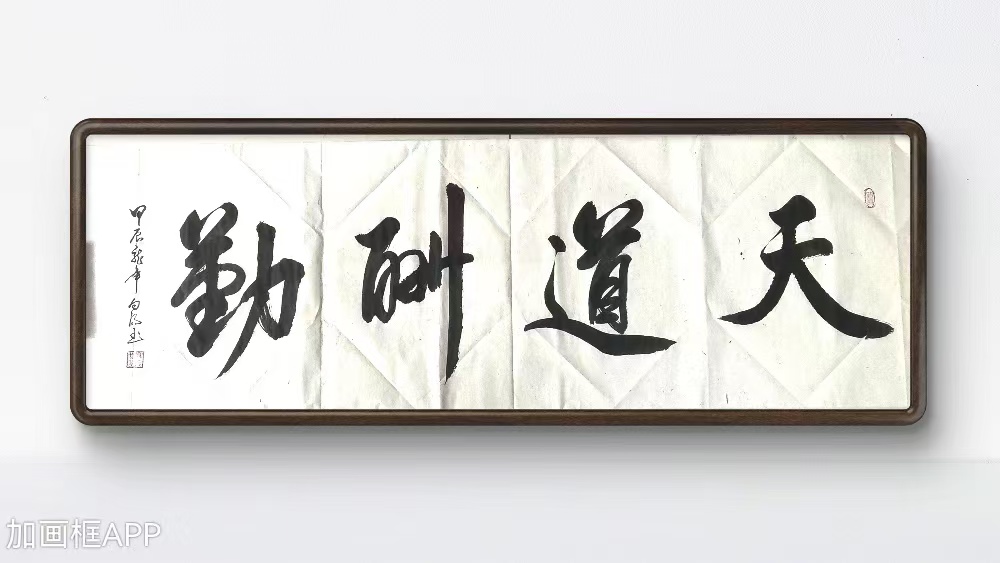 天道酬勤
甲辰年
加画框APP